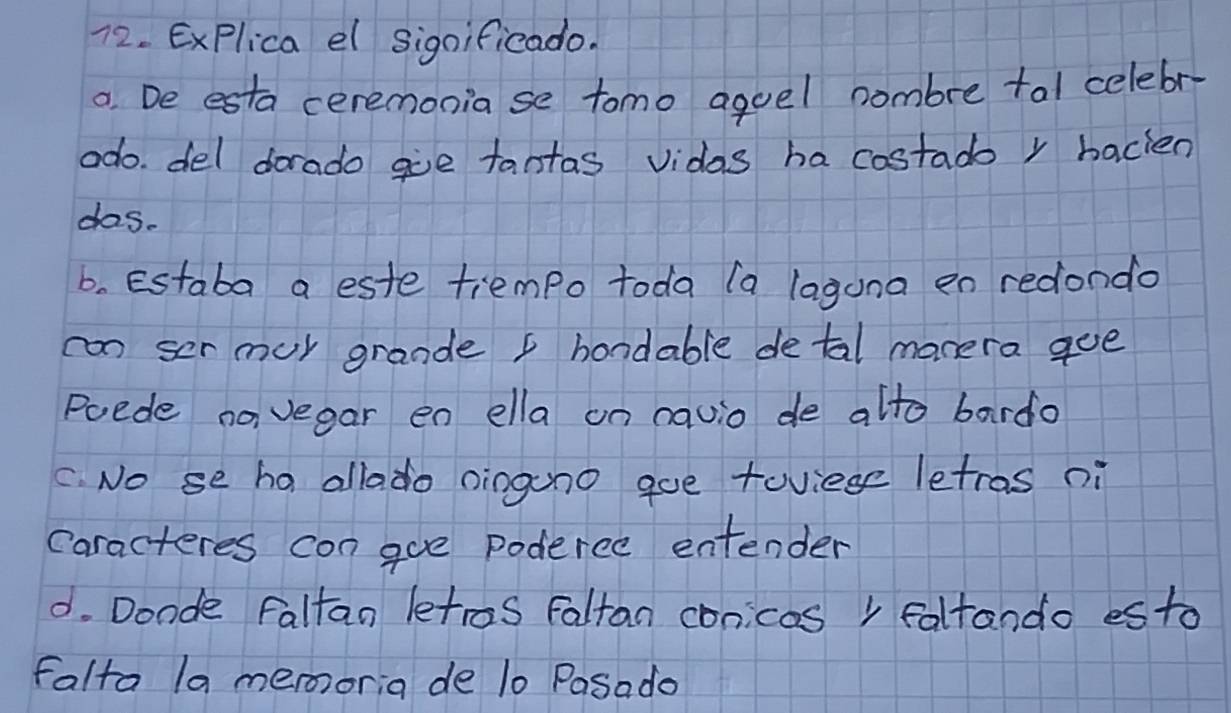 12. Explica el significado.
a. De esta ceremonia se tomo aquel nombre tal celebr-
ado. del dorado que tantas vidas ha costado y hacien
das.
b. Estaba a este tiempo toda la laguna en redondo
con ser muy grande y hondable de tal manera que
Puede navegar en ella un navio de alto bardo
c. No se ha allado ninguno que tuviese letras ni
caracteres con que poderee entender
d. Donde Faltan letras Faltan conicas y faltando esto
Falta la memoria de lo Pasado